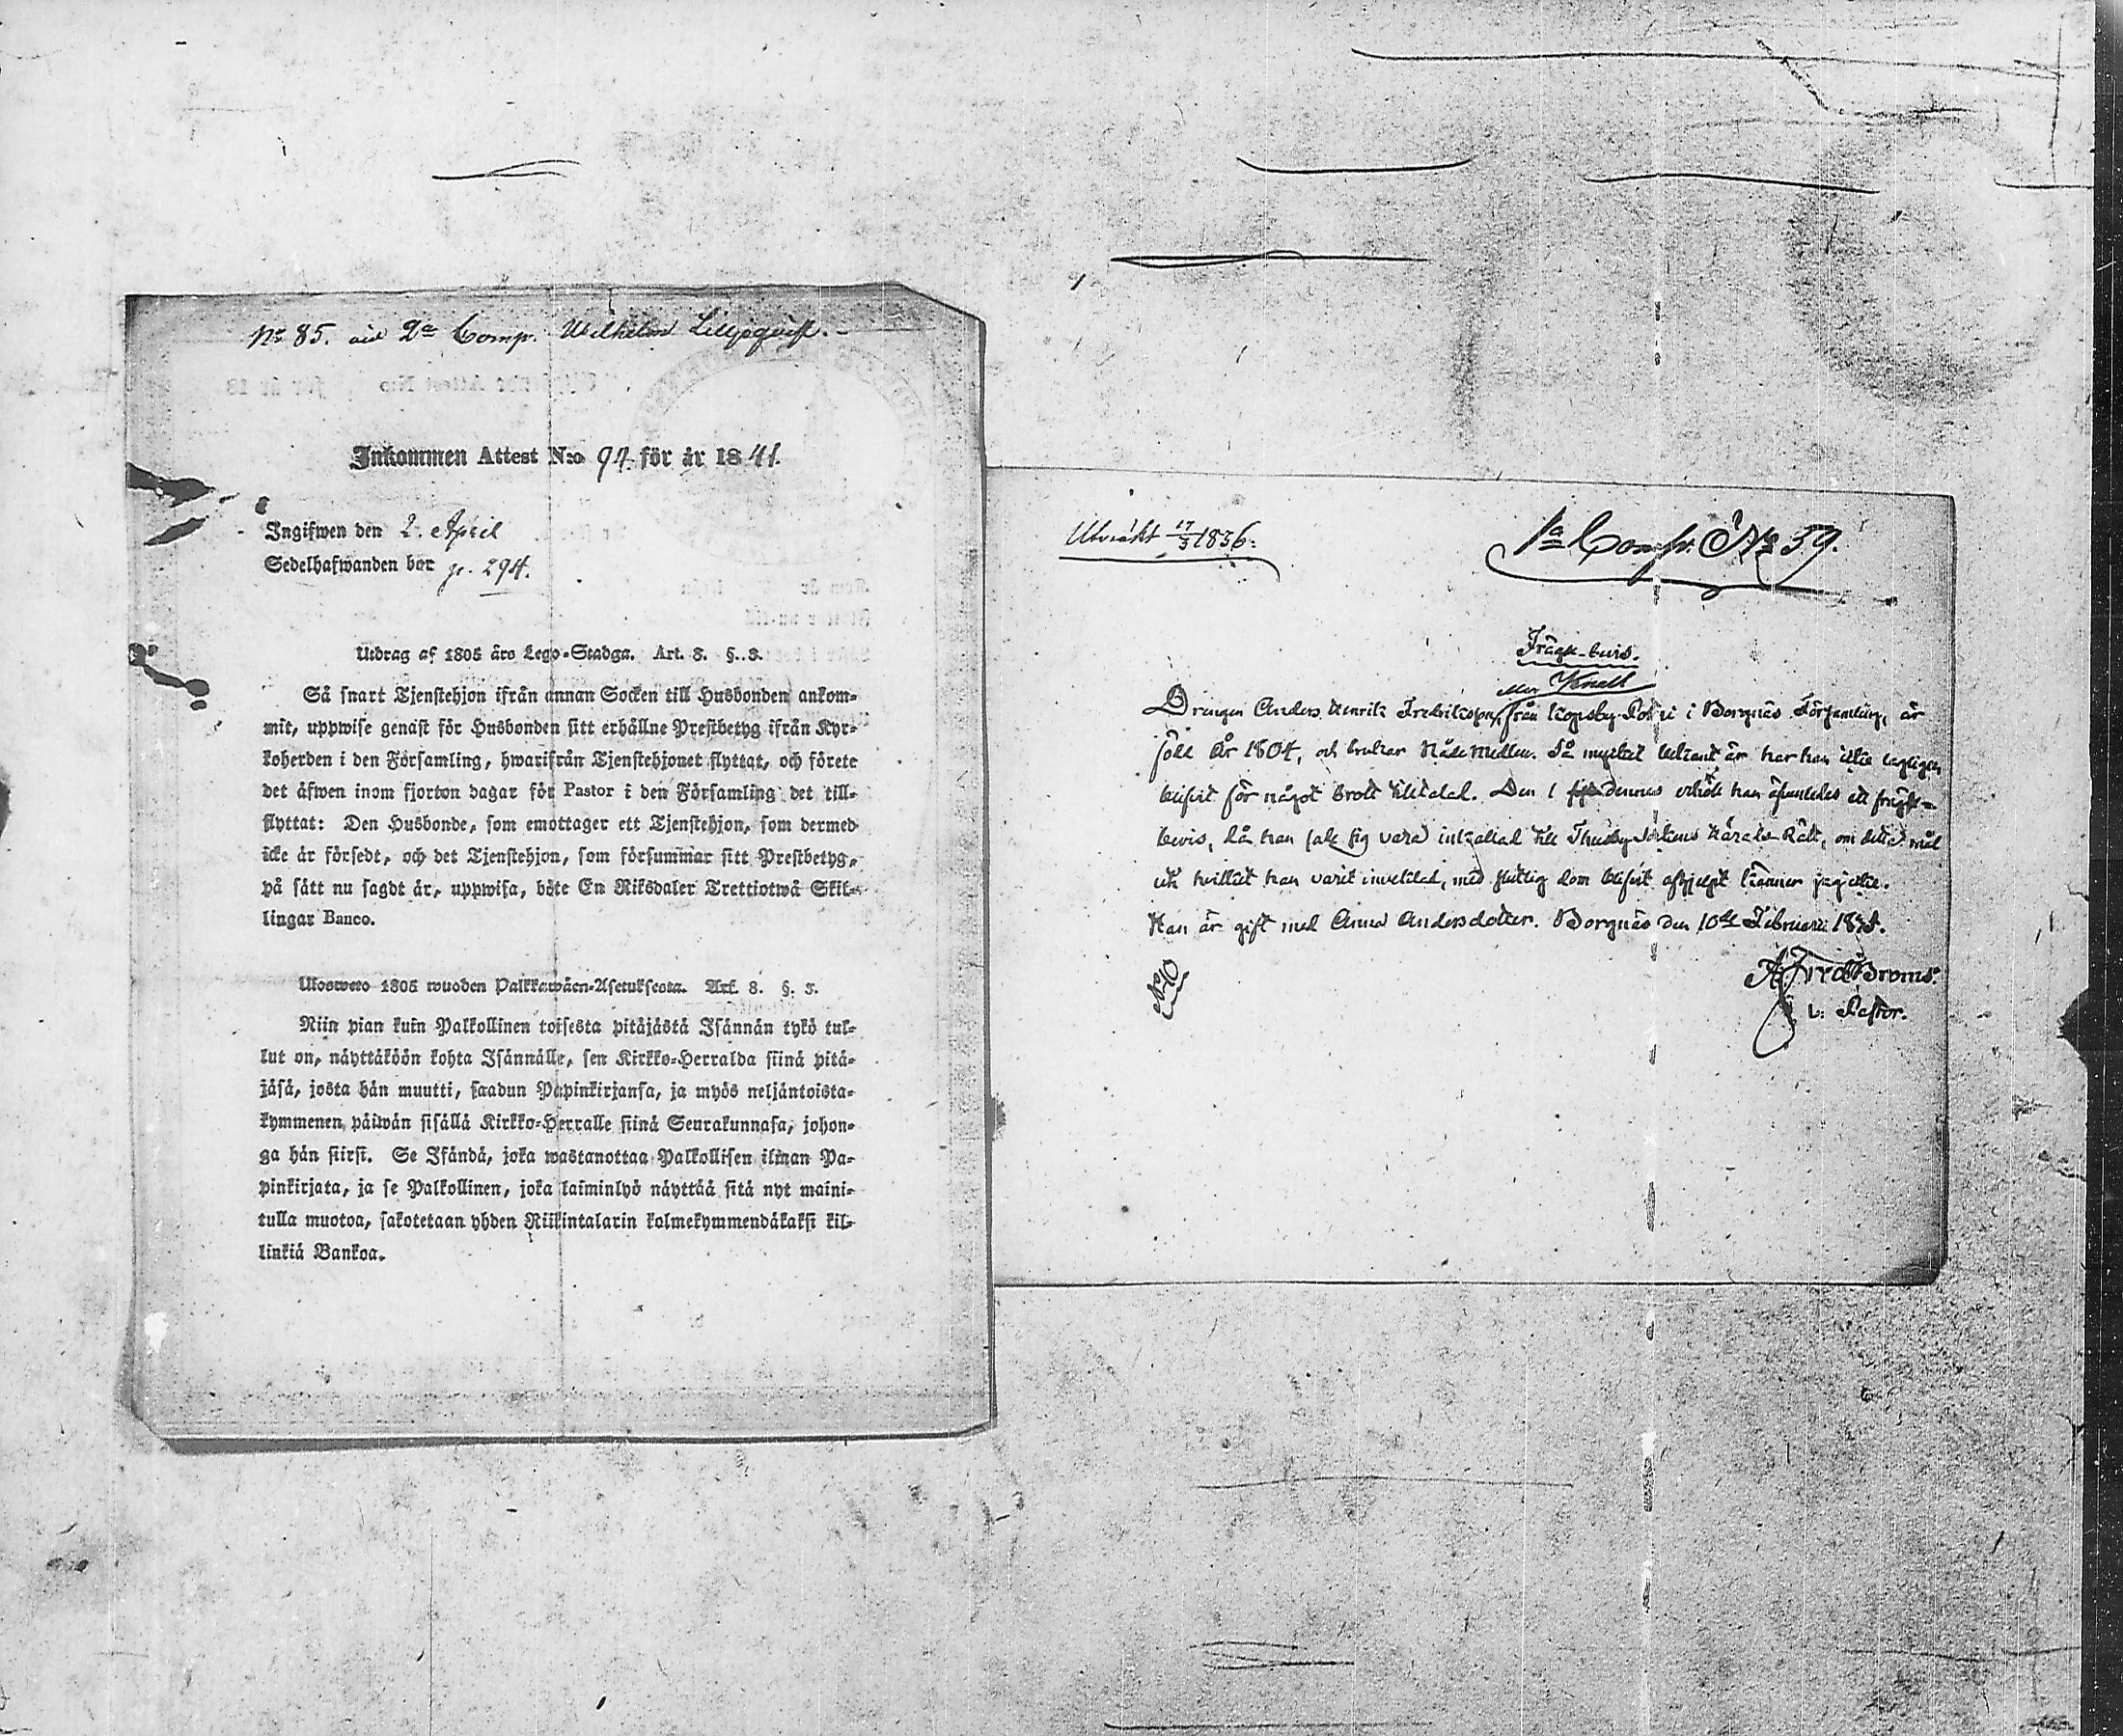 No 85. vid 2a Comp. Wilhelm Liljeqvist.
Inkommen Attest N:o 94 för år 1841.
Ingifwen den 2. April
Sedelhafwanden bor p. 294.
Utdrag af 1805 års Lego-Stadga. Art. 3. §. 3.
Så snart Tjenstehjon ifrån annan Socken till Husbonden ankom-
mit, uppwise genast för Husbonden sitt erhållne Prestbetyg ifrån Kyr-
koherden i den Församling, hwarifrån Tjenstehjonet flyttat, och förete
det åfwen inom fjorton dagar för Pastor i den Församling det till-
flyttat: Den Husbonde, som emottager ett Tjenstehjon, som dermed
icke är försedt, och det Tjenstehjon, som försummar sitt Prestbetyg,
på sätt nu sagdt är, uppwisa, böte En Riksdaler Trettiotwå Skil-
lingar Banco.
Ulosweto 1805 wuoden Palkkawäen-Asetuksesta. Art. 3. §. 3.
Niin pian kuin Palkollinen toisesta pitäjästä Isännän tykö tul-
lut on, näyttäköön kohta Isännälle, sen Kirkko-Herralda siinä pitä-
jäsä, josta hän muutti, saadun Papinkirjansa, ja myös neljäntoista-
kymmenen päiwän sisällä Kirkko-Herralle siinä Seurakunnasa, johon-
ga hän siirsi. Se Isändä, joka wastanottaa Palkollisen ilman Pa-
pinkirjata, ja se Palkollinen, joka laiminlyö näyttää sitä nyt maini-
tulla muotoa, sakotetaan yhden Riikintalarin kolmekymmendäkaksi kil-
linkiä Bankoa.
Utvräkt 17/3 1836.
1a Comp. No 39.
Frägde-bevis.
eller Knall
Drengen Anders Henrik Fredriksson från Kopsby i Borgnäs Församling, är
född År 1804, och brukar Nådemedlen. Så mycket bekant är har han icke lagligen
blifvit för något brott tilltalad. Den 1 dennes erhöll han äfvenledes ett frägde-
bevis, då han sade sig vara inkallad till Thusby Sokens Härads-Rätt, om detta mål
uti hvilket han varit invecklad, med slutlig dom blifvit afhjelpt känner jag icke.
Han är gift med Anna Andersdotter. Borgnäs den 10de Februari
v: Pastor.